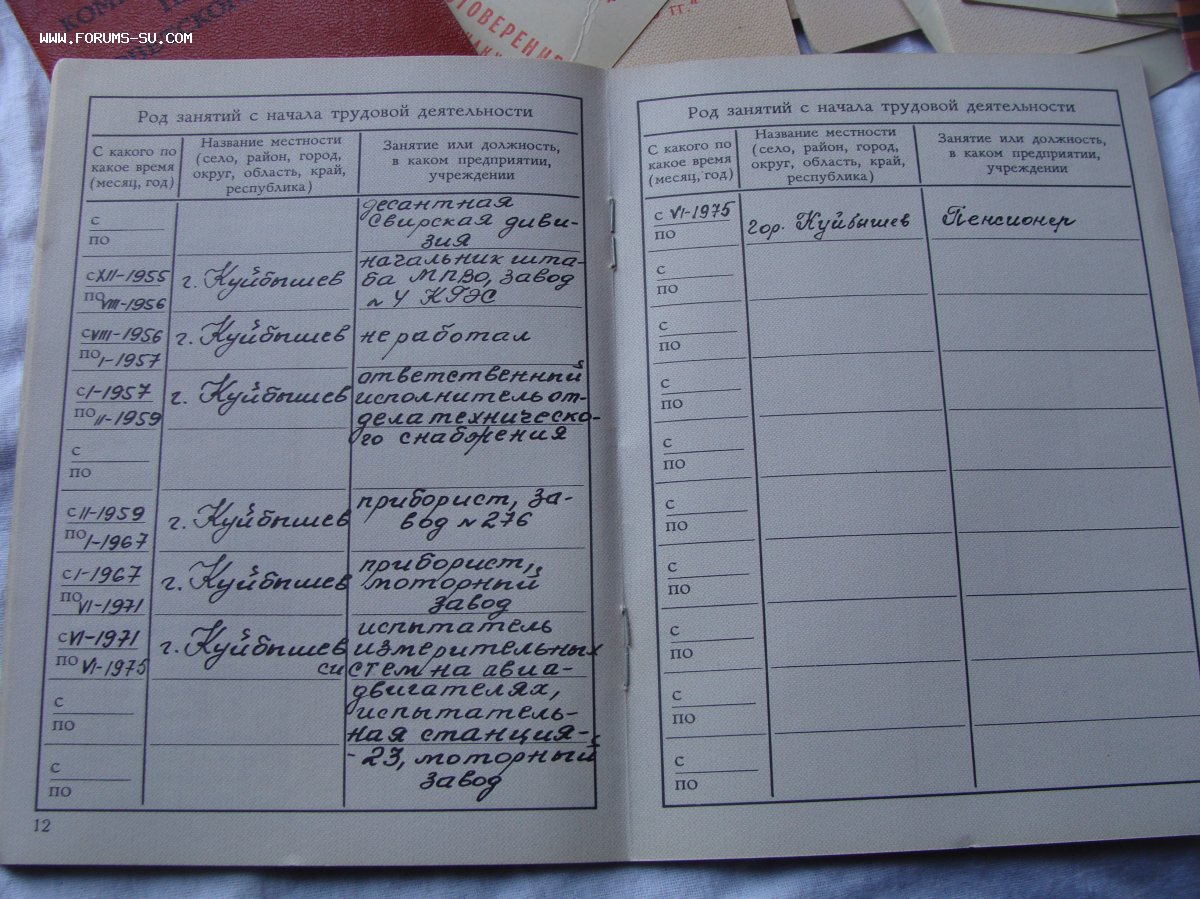 www.forums-su.com
КОМ
ТОВЕРЕНИЕ
гг."
Род занятий с начала трудовой деятельности
С какого по
какое время
(месяц, год)
Название местности
(село, район, город,
округ, область, край,
республика)
Занятие или должность,
в каком предприятии,
учреждении
с
по
десантная
Свирская диви-
зия
с XII-1955
по VIII-1956
г. Куйбышев
начальник шта-
ба МПВО, завод
N 4 КГЭС
с VIII-1956
по I-1957
г. Куйбышев
не работал
с I-1957
по II-1959
г. Куйбышев
ответственный
исполнитель от-
дела техническо-
го снабжения
с
по
с II-1959
по I-1967
г. Куйбышев
приборист, за-
вод N 276
с I-1967
по VI-1971
г. Куйбышев
приборист,
моторный
завод
с VI-1971
по VI-1975
г. Куйбышев
испытатель
измерительных
систем на авиа-
двигателях,
испытатель-
ная станция-
-23, моторный
завод
с
по
с
по
12
Род занятий с начала трудовой деятельности
С какого по
какое время
(месяц, год)
Название местности
(село, район, город,
округ, область, край,
республика)
Занятие или должность,
в каком предприятии,
учреждении
с VI-1975
по
гор. Куйбышев
Пенсионер
с
по
с
по
с
по
с
по
с
по
с
по
с
по
с
по
с
по